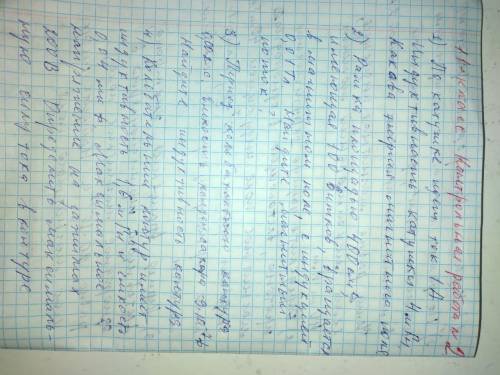 11 класс Контрольная работа №2
1) По катушке идет ток 1А.
Индуктивность катушки 4 мГн
Какова энергия магнитного поля
2) Рамка площадью 400 см²,
имеющая 100 витков, вращается
в магнитном поле, с индукцией
0,01Тл. Найдите магнитный
поток.
3) Период колебательного контура
Найдите индуктивность контура
4) Колебательный контур имеет
индуктивность 1,6 мГн и емкость
0,04 мкФ, максимальное
напряжение на зажимах
200В. Определите максималь-
ную силу тока в контуре